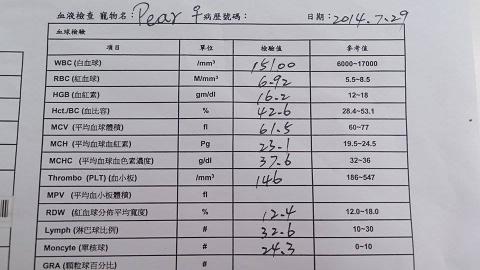 血液檢查 寵物名：Pear ♀ 病歷號碼： 日期：2014.7.29
血球檢驗
項目 單位 檢驗值 參考值
WBC (白血球) /mm³ 15100 6000~17000
RBC (紅血球) M/mm³ 6.92 5.5~8.5
HGB (血紅素) gm/dl 16.2 12~18
Hct./BC (血比容) % 42.6 28.4~53.1
MCV (平均血球體積) fl 61.5 60~77
MCH (平均血球血紅素) Pg 23.1 19.5~24.5
MCHC (平均血球血色素濃度) g/dl 37.6 32~36
Thrombo (PLT) (血小板) /mm³ 146 186~547
MPV (平均血小板體積) fl
RDW (紅血球分佈平均寬度) % 12.4 12.0~18.0
Lymph (淋巴球比例) # 32.6 10~30
Moncyte (單核球) # 24.3 0~10
GRA (顆粒球百分比)